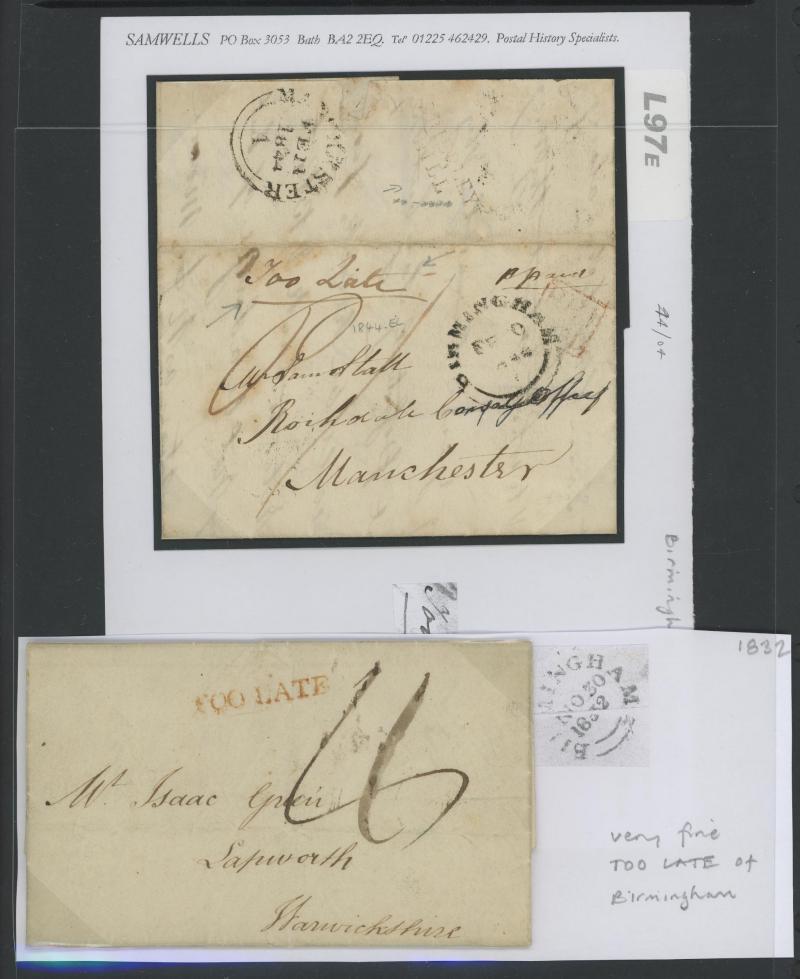 SAMWELLS PO Box 3053 Bath BA2 2EQ. Tel' 01225 462429. Postal History Specialists.
L97E
FE 1
1844
Too Late
p paid
1844.
BIRMINGHAM
Rochdale
Manchester
44/04
Birmingh
1832
TOO LATE
Mr. Isaac Green
Lapworth
Warwickshire
BIRMINGHAM
NO 30
1832
very fine
TOO LATE of
Birmingham